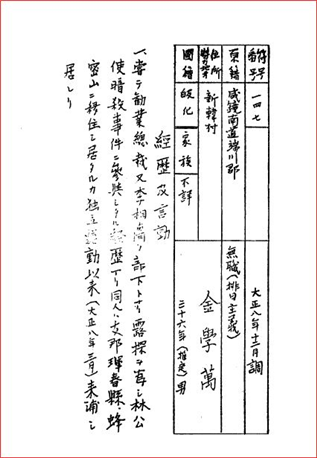 符号番号 一四七
大正八年十二月調
原籍 咸鏡南道端川郡
無職(排日主義)
住所 新韓村
金學萬
國籍 皈化 家族 不詳
三十六年(推定)男
經歴及言動
一、嘗テ勧業總裁又李相卨ノ部下トナリ露探ヲ為シ林公
使暗殺事件ニ參與シタル經歴アリ同人ハ支那琿春縣、蜂
密山ニ移住シ居タルカ独立運動以来(大正八年三月)来浦シ
居レリ